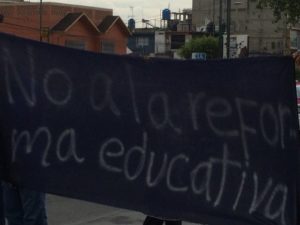 No a la refor-
ma educativa